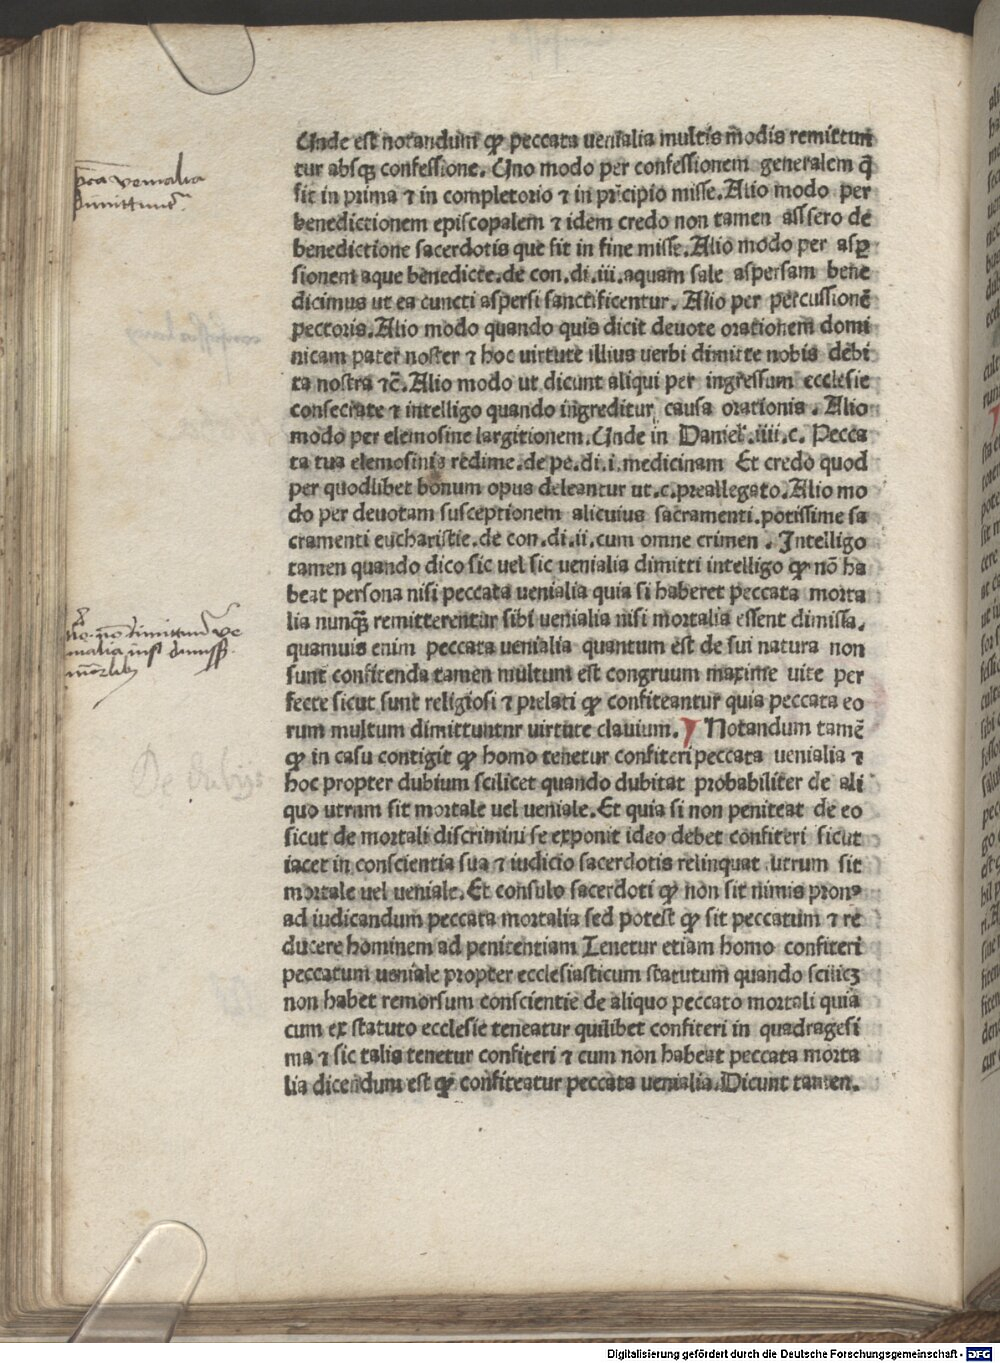 Unde est notandum ꝙ peccata uenialia multis modis remittun
tur absqꝫ confessione. Uno modo per confessionem generalem q̄
fit in prima ⁊ in completorio ⁊ in prīcipio misse. Alio modo per
benedictionem episcopalem ⁊ idem credo non tamen assero de
benedictione sacerdotis que fit in fine misse. Alio modo per asꝑ
sionem aque benedicte. de con. di. iii. aquam sale aspersam bene
dicimus ut ea cuncti aspersi sanctificentur. Alio per percussionē
pectoris. Alio modo quando quis dicit deuote orationem domi
nicam pater noster ⁊ hoc uirtute illius uerbi dimitte nobis debi
ta nostra ⁊c̄. Alio modo ut dicunt aliqui per ingressum ecclesie
consecrate ⁊ intelligo quando ingreditur causa orationis. Alio
modo per elemosine largitionem. Unde in Daniel. iiii. c. Pecca
ta tua elemosinis redime. de pe. di. i. medicinam Et credo quod
per quodlibet bonum opus deleantur ut. c. preallegato. Alio mo
do per deuotam susceptionem alicuius sacramenti. potissime sa
cramenti eucharistie. de con. di. ii. cum omne crimen. Intelligo
tamen quando dico sic uel sic uenialia dimitti intelligo ꝙ nō ha
beat persona nisi peccata uenialia quia si haberet peccata morta
lia nunqꝫ remitterentur sibi uenialia nisi mortalia essent dimissa.
quamuis enim peccata uenialia quantum est de sui natura non
sunt confitenda tamen multum est congruum maxime uite per
fecte sicut sunt religiosi ⁊ prelati ꝙ confiteantur quia peccata eo
rum multum dimittuntur uirtute clauium. Notandum tamē
ꝙ in casu contigit ꝙ homo tenetur confiteri peccata uenialia ⁊
hoc propter dubium scilicet quando dubitat probabiliter de ali
quo utrum sit mortale uel ueniale. Et quia si non peniteat de eo
sicut de mortali discrimini se exponit ideo debet confiteri sicut
iacet in conscientia sua ⁊ iudicio sacerdotis relinquat utrum sit
mortale uel ueniale. Et consulo sacerdoti ꝙ non sit nimis pronꝰ
ad iudicandum peccata mortalia sed potest ꝙ sit peccatum ⁊ re
ducere hominem ad penitentiam Tenetur etiam homo confiteri
peccatum ueniale propter ecclesiasticum statutum quando scilicꝫ
non habet remorsum conscientie de aliquo peccato mortali quia
cum ex statuto ecclesie teneatur quilibet confiteri in quadragesi
ma ⁊ sic talis tenetur confiteri ⁊ cum non habeat peccata morta
lia dicendum est ꝙ confiteatur peccata uenialia. Dicunt tamen.
pcca venialia
De dubijs
Digitalisierung gefördert durch die Deutsche Forschungsgemeinschaft - DFG